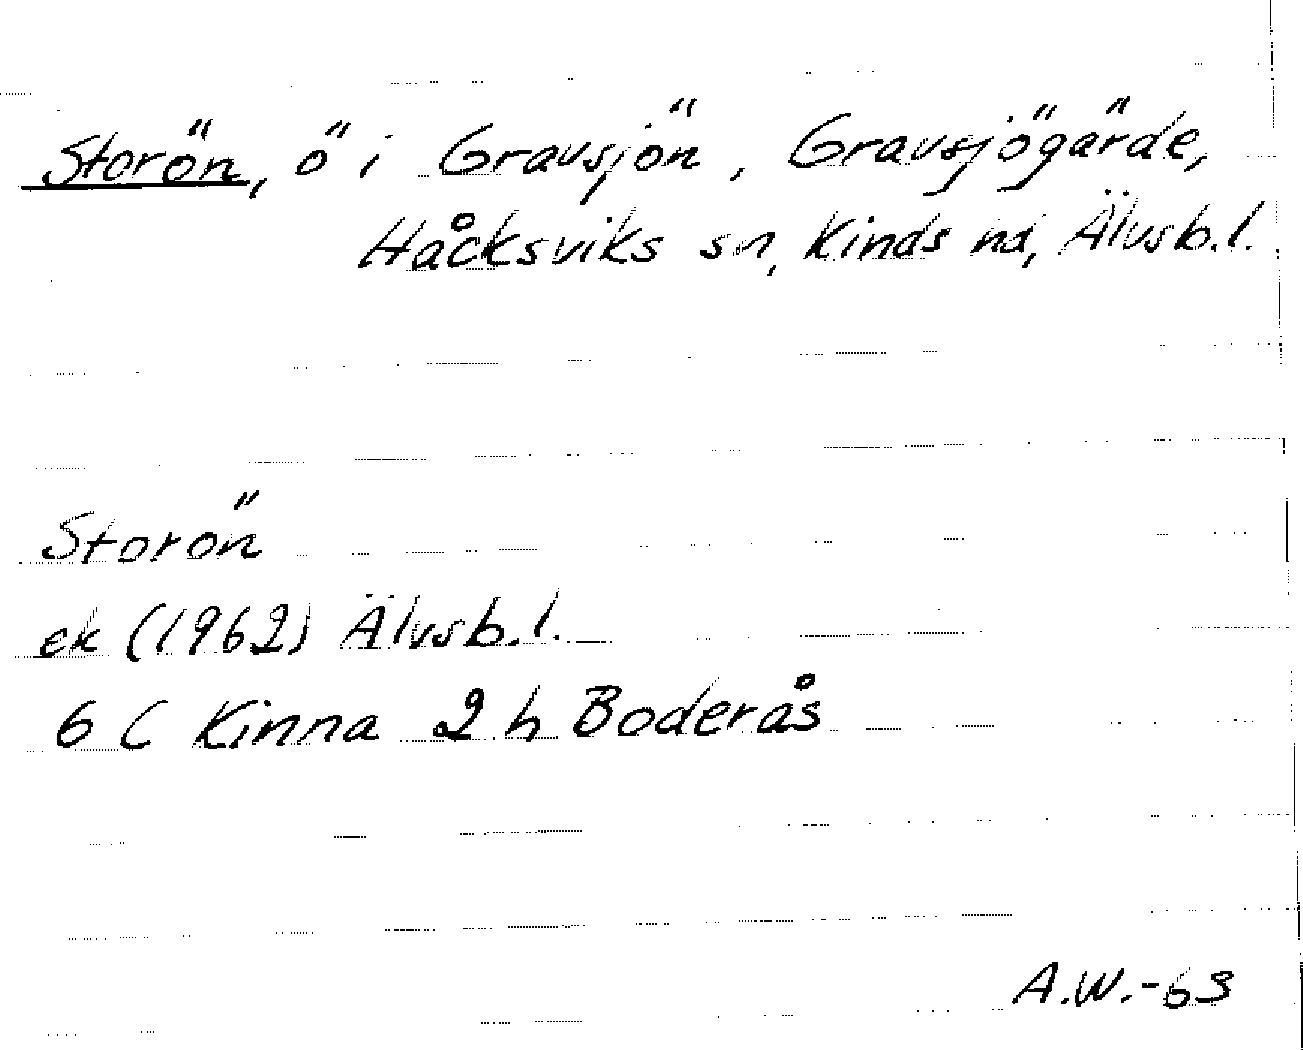 Storön, ö i Gravsjön, Gravsjögärde,
Håcksviks sn, Kinds hd, Älvsb.l.
Storön
ek (1962) Älvsb.l.
6 C Kinna 2 h Boderås
A.W.-63